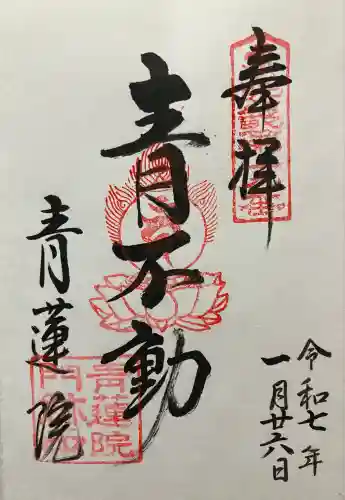 奉拝
令和七年
一月廿六日
青不動
青蓮院
青蓮院
門跡